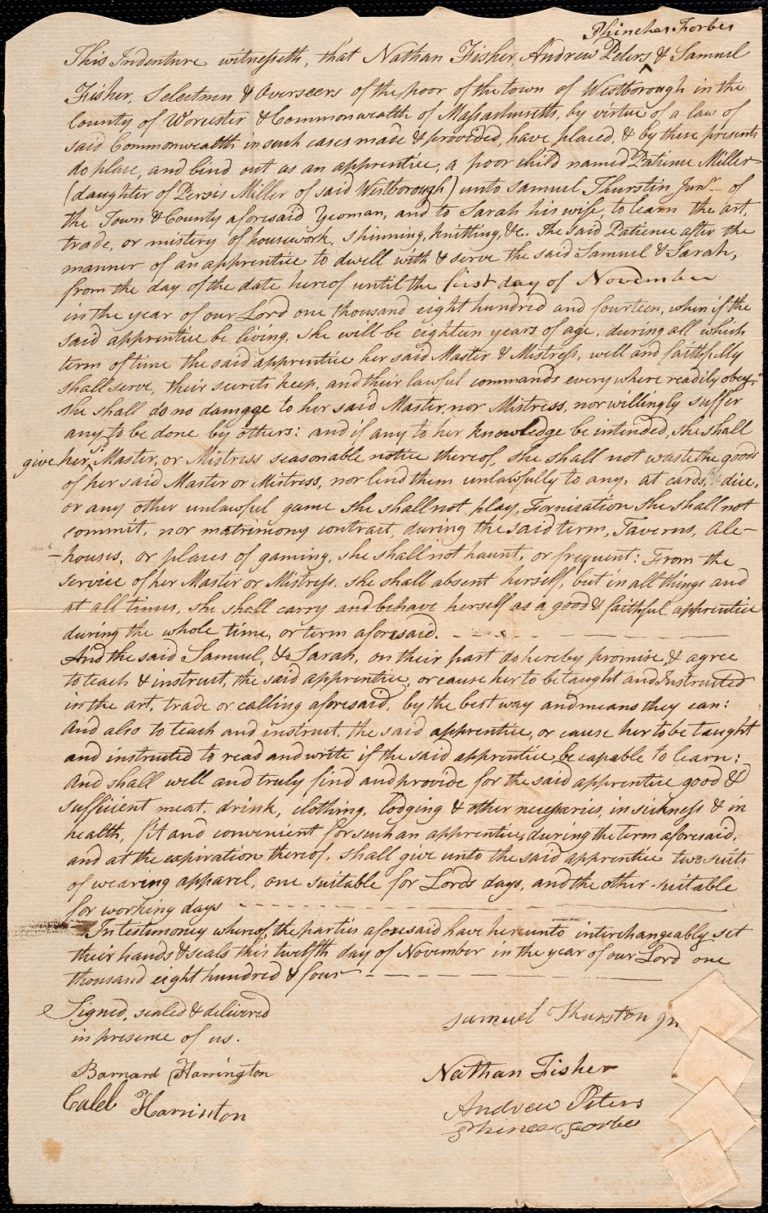 Phinehas Forbes
This Indenture witnesseth, that Nathan Fisher, Andrew Peters ^ & Samuel
Fisher, Selectmen & Overseers of the poor of the town of Westborough in the
County of Worcester & Commonwealth of Massachusetts, by virtue of a law of
said Commonwealth in such cases made & provided, have placed, & by these presents
do place, and bind out as an apprentice, a poor child named Patience Miller
(daughter of Persis Miller of said Westborough) unto Samuel Thurstin Junr. of
the Town & County aforesaid Yeoman, and to Sarah his wife, to learn the art,
trade, or mistery of housework, spinning, knitting, &c. She said Patience after the
manner of an apprentice to dwell with & serve the said Samuel & Sarah,
from the day of the date hereof until the first day of November
in the year of our Lord one thousand eight hundred and fourteen, when if the
said apprentice be living, she will be eighteen years of age, during all which
term of time the said apprentice her said Master & Mistress, well and faithfully
shall serve, their secrets keep, and their lawful commands every where readily obey.
She shall do no damage to her said Master, nor Mistress, nor willingly suffer
any to be done by others: and if any to her knowledge be intended, she shall
give her ^ Master, or Mistress seasonable notice thereof, she shall not waste the goods
of her said Master or Mistress, nor lend them unlawfully to any, at cards, dice,
or any other unlawful game she shall not play, Fornication she shall not
commit, nor matrimony contract, during the said term, Taverns, ale-
-houses, or places of gaming, she shall not haunt, or frequent: From the
service of her Master or Mistress, she shall absent herself, but in all things and
at all times, she shall carry and behave herself as a good & faithful apprentice
during the whole time, or term aforesaid.
And the said Samuel, & Sarah, on their part do hereby promise, & agree
to teach & instruct, the said apprentice, or cause her to be taught and instructed
in the art, trade or calling aforesaid, by the best way and means they can:
And also to teach and instruct, the said apprentice, or cause her to be taught
and instructed to read and write if the said apprentice be capable to learn:
And shall well and truly find and provide for the said apprentice good &
sufficient meat, drink, clothing, lodging & other necessaries, in sickness & in
health, fit and convenient for such an apprentice, during the term aforesaid,
and at the expiration thereof, shall give unto the said apprentice two suits
of wearing apparel, one suitable for Lords days, and the other suitable
for working days
In testimony whereof, the parties aforesaid have hereunto interchangeably set
their hands & seals this twelfth day of November in the year of our Lord one
thousand eight hundred & four
Signed, sealed & delivered
in presence of us.
Barnard Harrington
Caleb Harrinton
Samuel Thurston Jn
Nathan Fisher
Andrew Peters
Phineas Forbes